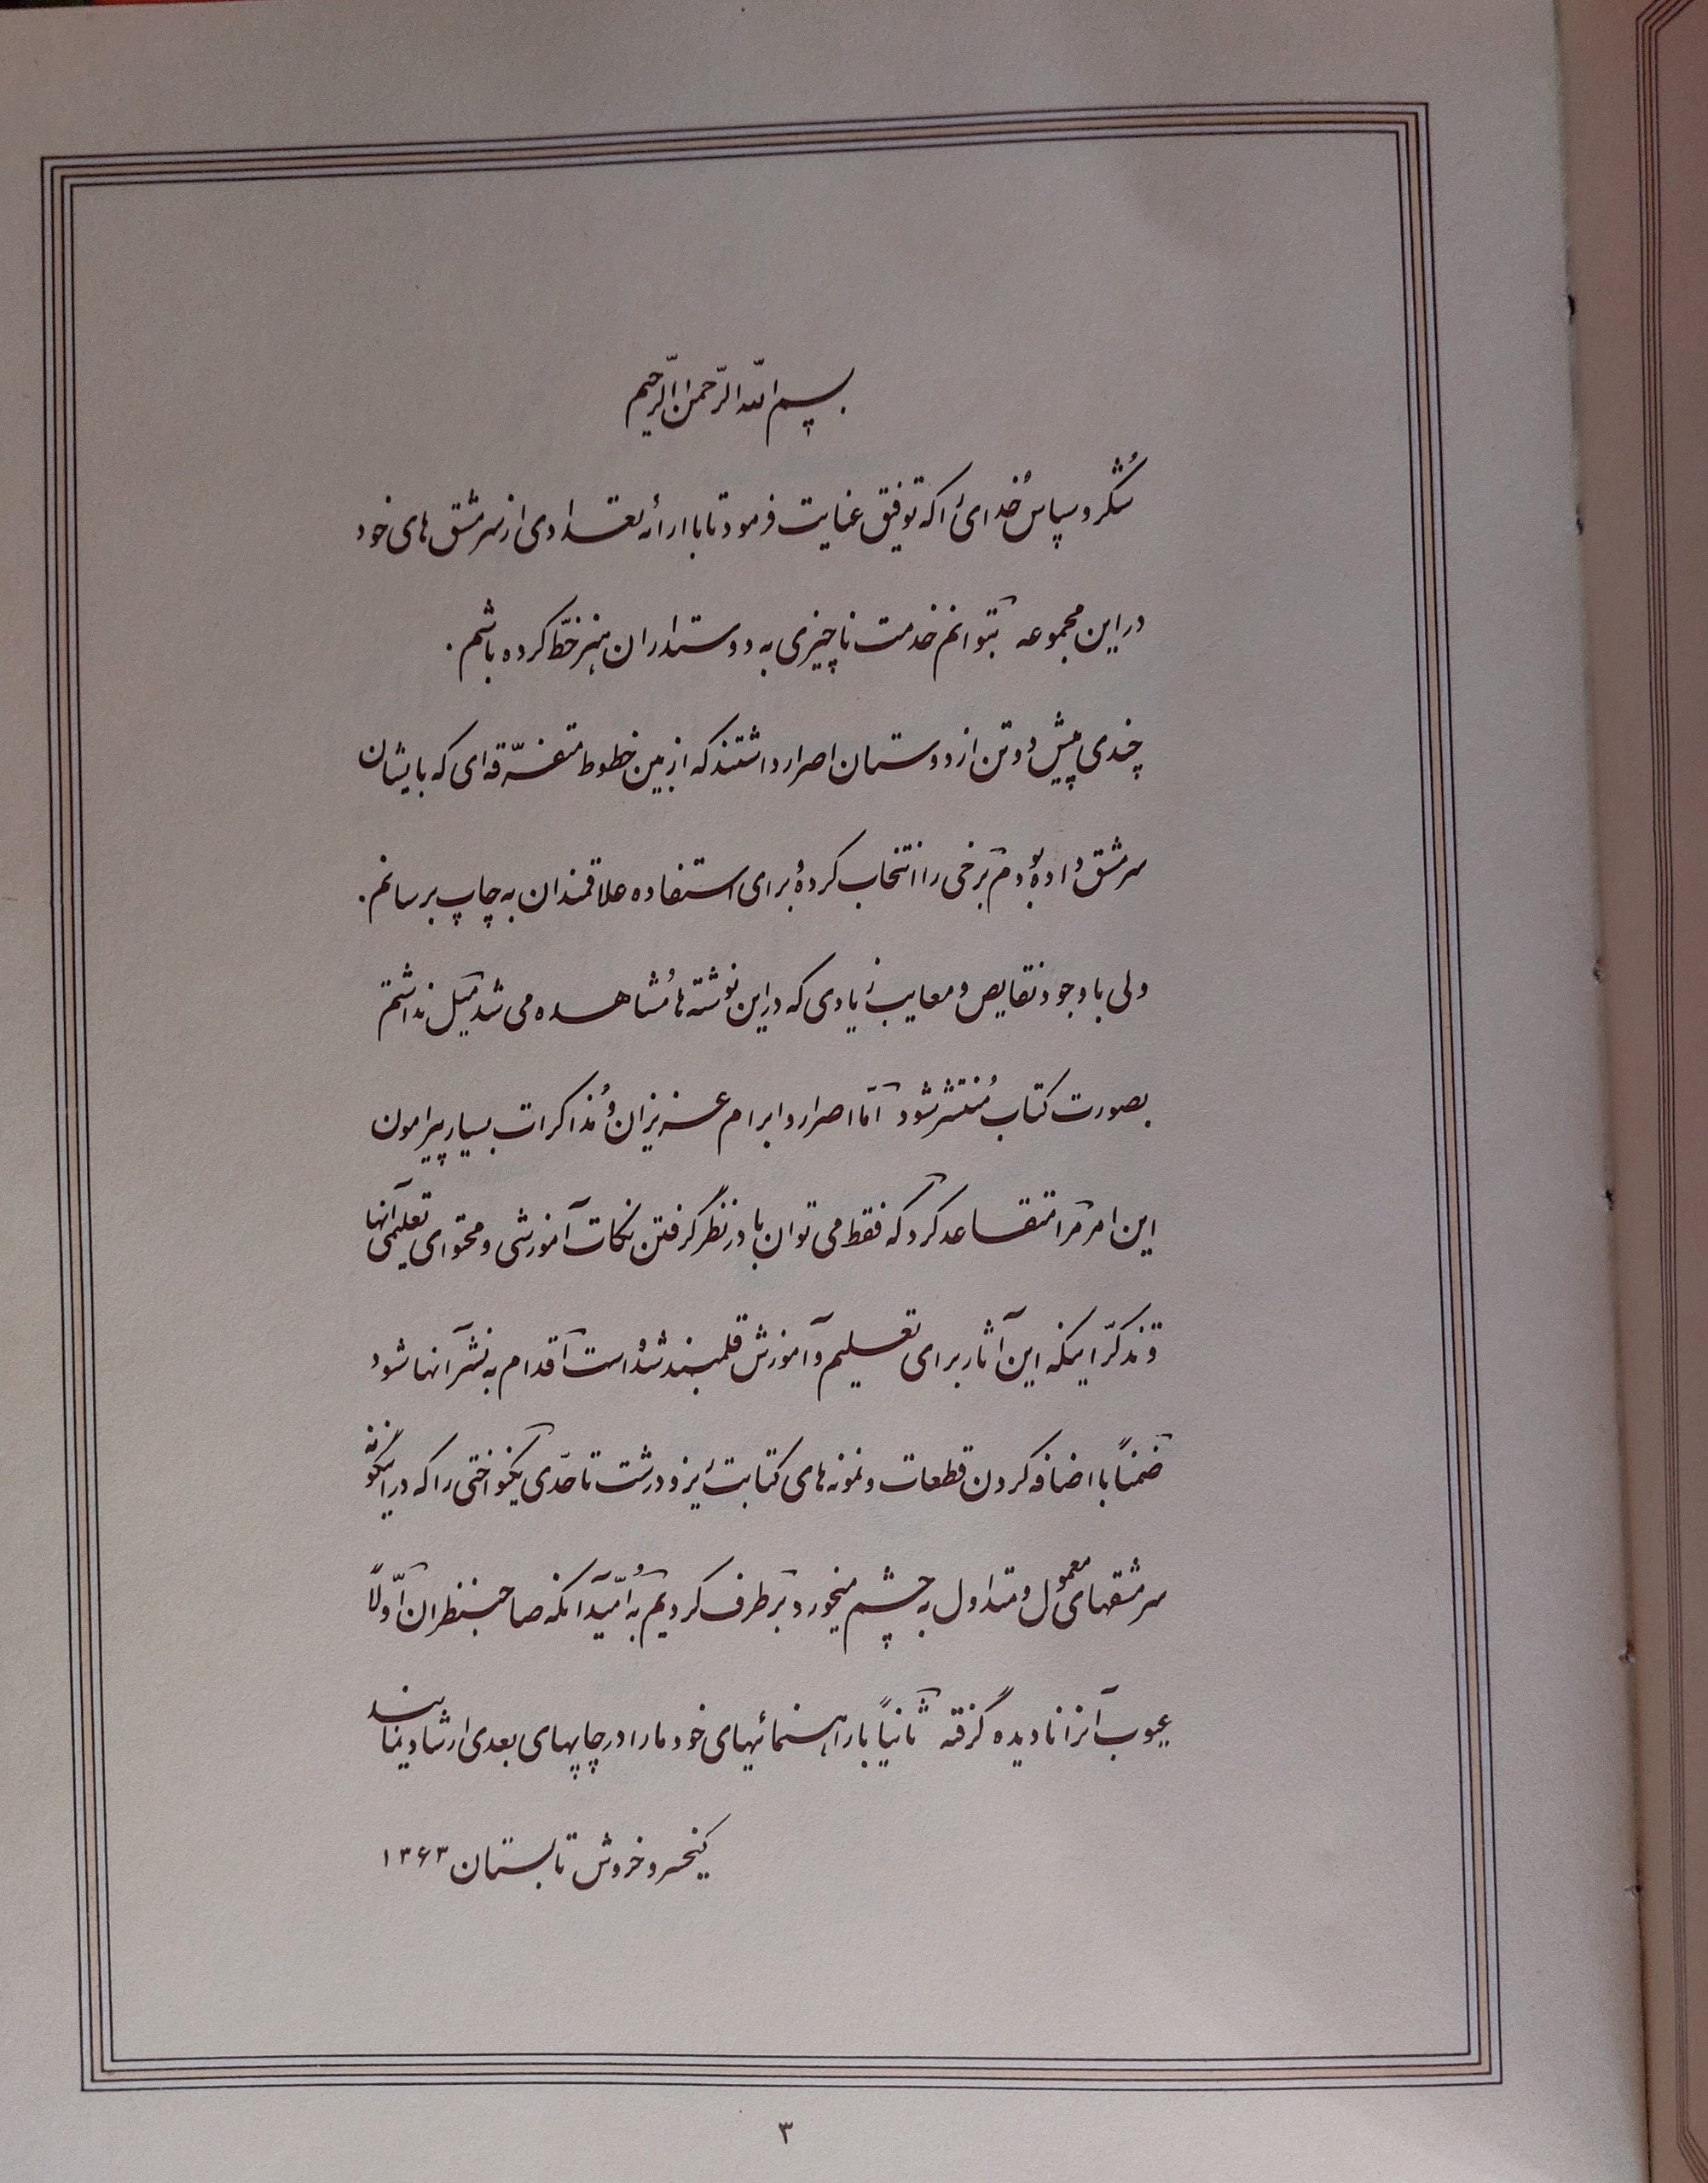 بسم الله الرّحمن الرّحیم
شُکر و سپاس خُدای را که توفیق عنایت فرمود تا با ارائه تعدادی از سرمشق های خود
در این مجموعه بتوانم خدمت ناچیزی به دوستداران هنر خطّ کرده باشم .
چندی پیش دو تن از دوستان اصرار داشتند که از بین خطوط متفرّقه ای که بایشان
سرمشق داده بودم برخی را انتخاب کرده و برای استفاده علاقمندان به چاپ برسانم .
ولی با وجود نقایص و معایب زیادی که در این نوشته ها مُشاهده می شد میل نداشتم
بصورت کتاب مُنتشر شود امّا اصرار و ابرام عزیزان و مُذاکرات بسیار پیرامون
این امر مرا متقاعد کرد که فقط می توان با در نظر گرفتن نکات آموزشی و محتوای تعلیمی آنها
و تذکّر اینکه این آثار برای تعلیم و آموزش قلمبند شده است اقدام به نشر آنها شود
ضمناً با اضافه کردن قطعات و نمونه های کتابت ریز و درشت تا حدّی یکنواختی را که در اینگونه
سرمشقهای معمول و متداول به چشم میخورد برطرف کردیم به اُمّید آنکه صاحبنظران اوّلاً
عیوب آنرا نادیده گرفته ثانیاً با راهنمائیهای خود ما را در چاپهای بعدی ارشاد نمایند
کیخسرو خروش تابستان ۱۳۶۳
۳